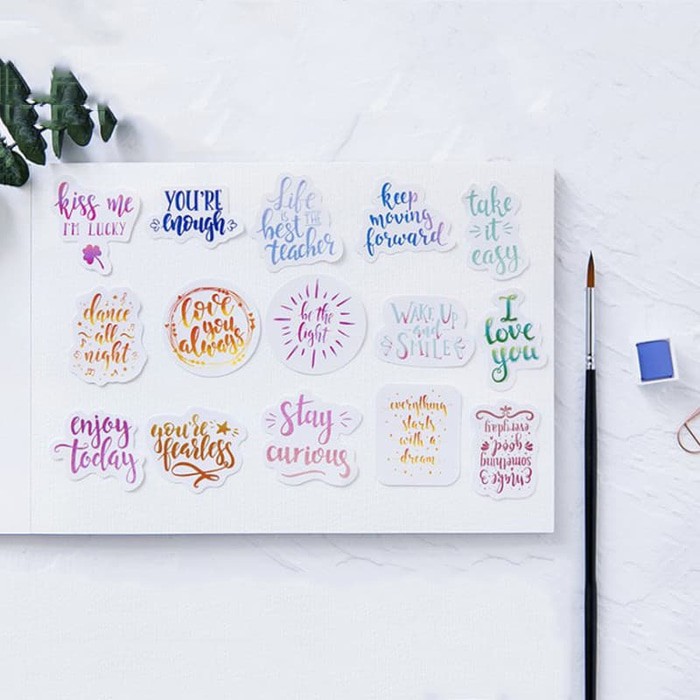 kiss me
I'M LUCKY
YOU'RE
enough
Life
IS THE
best
teacher
keep
moving
forward
take
it
easy
dance
all
night
love
you
always
be the
light
WAKE UP
and
SMILE
I
love
you
enjoy
today
you're
fearless
Stay
curious
everything
starts
with a
dream
make
something
good
everyday